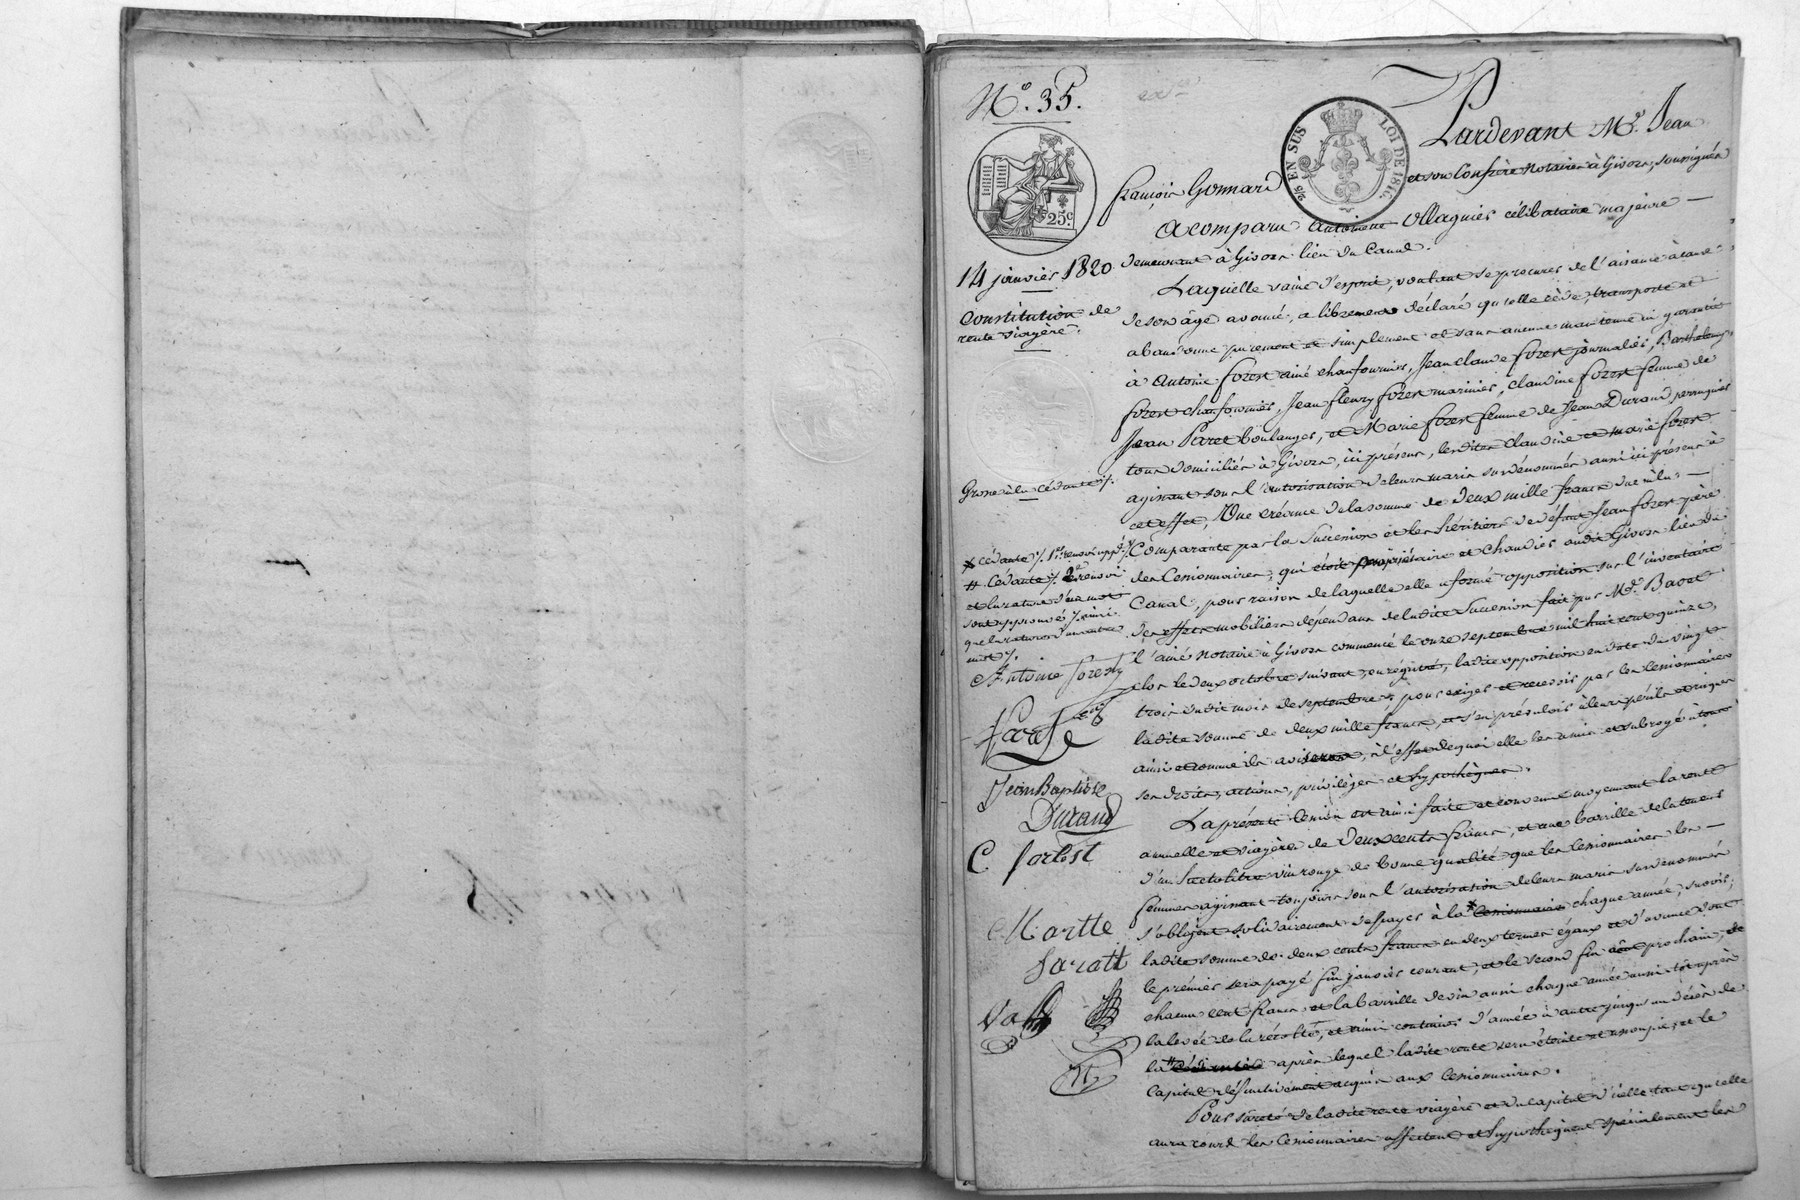 N.° 35.
25 EN SUS
LOI DE 1816.
25.c
Pardevant M.e Jean
françois Gonnard et son Confrère Notaires à Givors, soussignés
a comparu Antoinette Ollagnier célibataire majeure —
demeurant à Givors lieu du Canal.
14 janvier 1820
Constitution de
rente viagère.
Laquelle saine d'esprit, voulant se procurer de l'aisance à cause
de son âge avancé, a librement déclaré qu'elle cède, transporte et
abandonne purement et simplement et sans aucune maintenue ni garantie
à Antoine forest ainé chaufournier, Jean claude forest journalier, Barthelemy
forest chaufournier, Jean fleury forest marinier, claudine forest femme de
Jean Paret boulanger, et Marie forest femme de Jean Durand perruquier
tous domiciliés à Givors, ici présens, lesdites claudine et marie forest
agissant sous l'autorisation de leurs maris susdénommés aussi ici présens à
cet effet, Une créance de la somme de deux mille francs due à la —
Comparante par la Succession et les héritiers de défunt Jean forest père
des Cessionnaires, qui étoit propriétaire et Chaudier audit Givors lieu du
Canal, pour raison de laquelle elle a formé opposition sur l'inventaire
des effets mobiliers dépendans de ladite Succession fait par M.e Bavet
l'ainé Notaire à Givors commencé le onze septembre mil huit cent quinze,
clos le deux octobre suivant, enregistré, ladite opposition en date du vingt
trois dudit mois de septembre; pour exiger et recevoir par les Cessionnaires
ladite somme de deux mille francs, et s'en prévaloir à leurs périls et risques
ainsi et comme ils aviseront, à l'effet de quoi elle les a mis et subrogé à tous
ses droits, actions, privilèges et hypothèques.
La présente Cession est ainsi faite et convenue moyennant la rente
annuelle et viagère de Deux cents francs, et une barrille de la teneur
d'un hectolitre vin rouge de bonne qualité que les Cessionnaires les —
femmes agissant toujours sous l'autorisation de leurs maris susdénommés
s'obligent solidairement de payer à la * Cessionnaire chaque année, savoir;
ladite somme de deux cents francs en deux termes égaux et d'avance dont
le premier sera payé fin janvier courant, et le second fin août prochain, de
chacun cent francs et la barrille de vin aussi chaque année aussi-tôt après
la levée de la récolte, et ainsi continuer d'année à autre jusqu'au décès de
la # après lequel ladite rente sera éteinte et assoupie, et le
Capital définitivement acquis aux Cessionnaires.
Pour sûreté de ladite rente viagère et du capital d'icelle tant qu'elle
aura cours les Cessionnaires affectent et hypothèquent spécialement les
Grosse à la Cédante
* Cédante 1.er renvoi app.é
# Cédante 2.e renvoi
et la rature d'un mot
sont approuvés
que la rature d'un autre
mot
Antoine forest
Jean Baptiste
Durand
C. forest